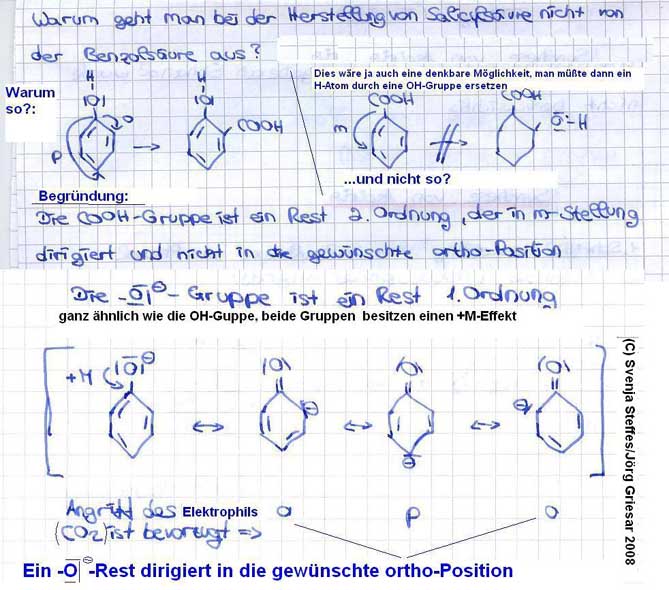 Warum geht man bei der Herstellung von Salicylsäure nicht von
der Benzolsäure aus?
Dies wäre ja auch eine denkbare Möglichkeit, man müßte dann ein
H-Atom durch eine OH-Gruppe ersetzen
Warum
so?:
H
IOI
o
p
H
IOI
COOH
COOH
m
COOH
O-H
...und nicht so?
Begründung:
Die COOH-Gruppe ist ein Rest 2. Ordnung, der in m-Stellung
dirigiert und nicht in die gewünschte ortho-Position
Die -O|⊖- Gruppe ist ein Rest 1. Ordnung
ganz ähnlich wie die OH-Guppe, beide Gruppen besitzen einen +M-Effekt
+M
|O|⊖
IOI
⊖
IOI
⊖
IOI
⊖
Angriff des Elektrophils o p o
(CO2) ist bevorzugt =>
Ein -O|⊖-Rest dirigiert in die gewünschte ortho-Position
(C) Svenja Steffes/Jörg Griesar 2008